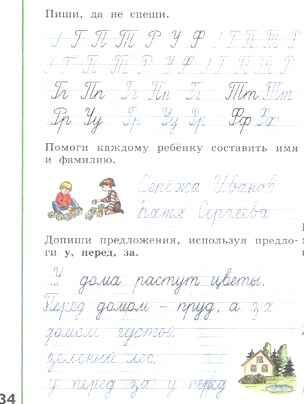 Пиши, да не спеши.
Г П Т Р У Ф Г П Т Р
Г П Т Р У Ф Г П Т Р
Гг Пп Гг Пп Гг Тт Тт
Рр Уу Рр Уу Рр Фф Фф
Помоги каждому ребёнку составить имя
и фамилию.
Серёжа Иванов
Катя Сергеева
Допиши предложения, используя предло-
ги у, перед, за.
У дома растут цветы.
Перед домом – пруд, а за
домом густой
зелёный лес.
у перед за у перед
34